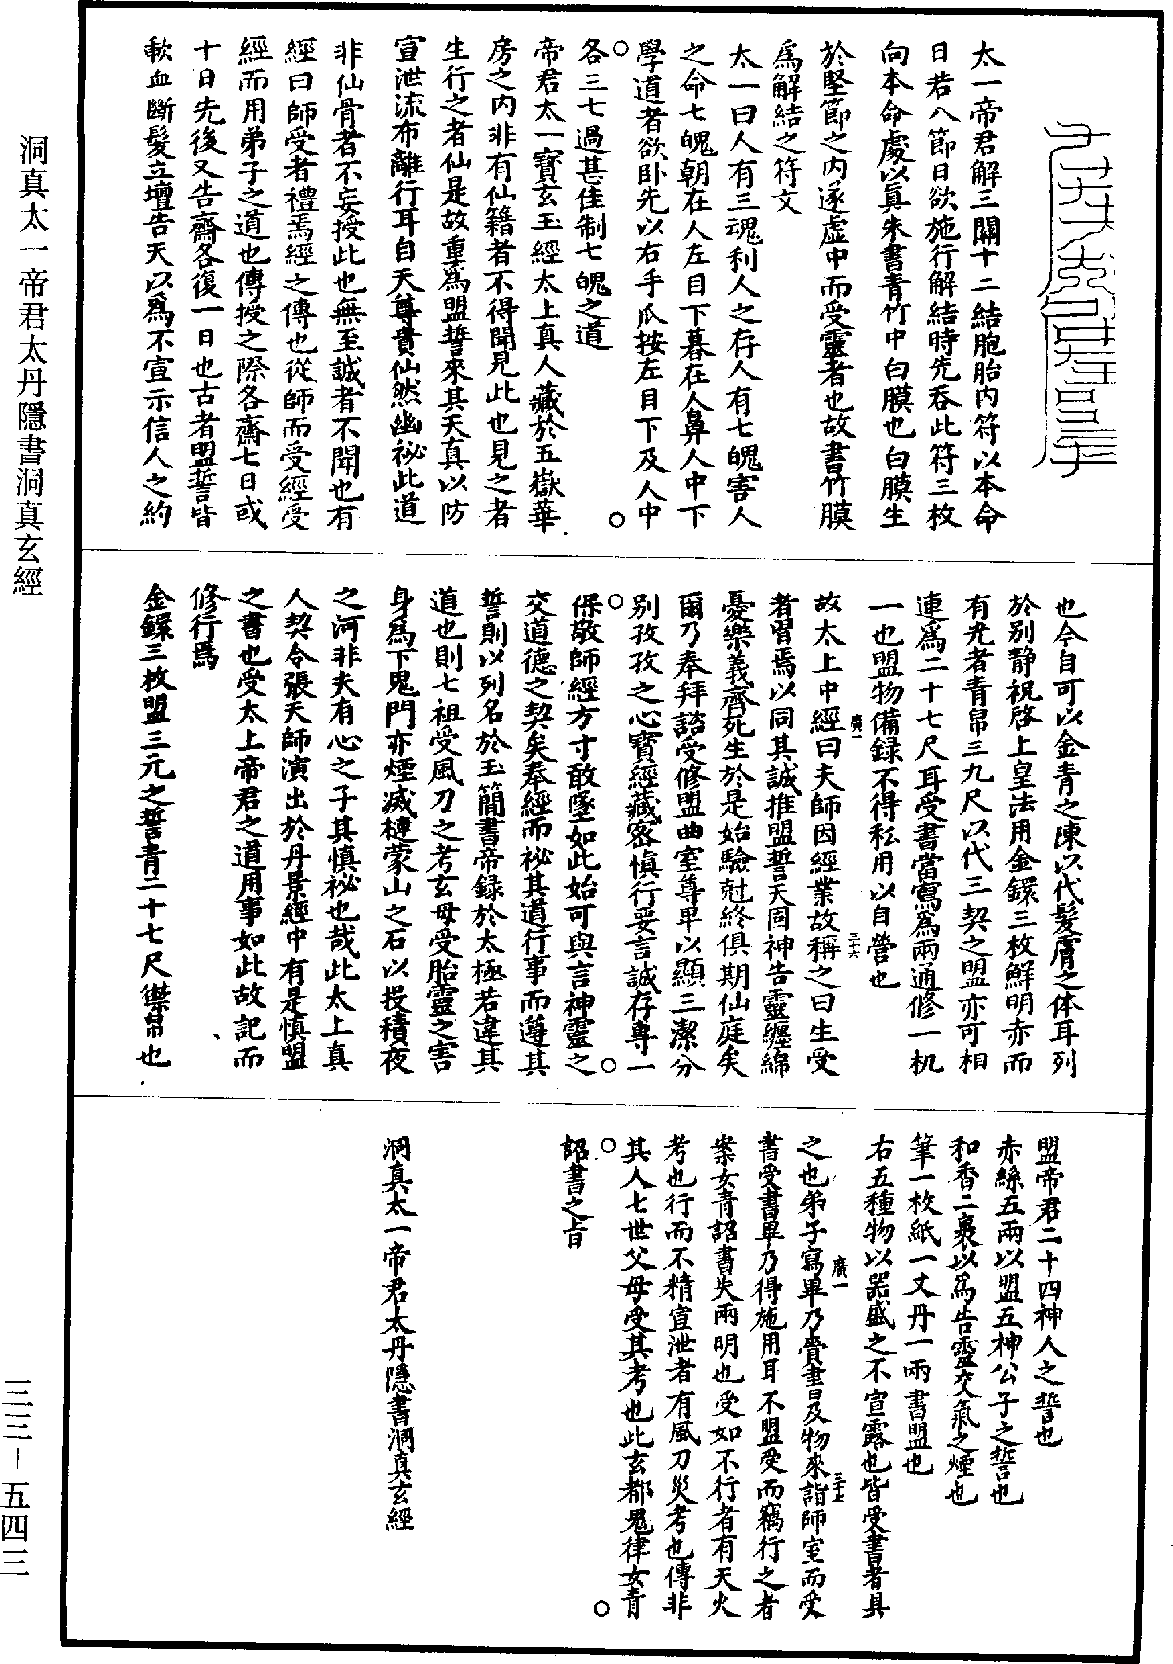 太一帝君解三關十二結胞胎內符以本命
日若八節日欲施行解結時先吞此符三枚
向本命處以真朱書青竹中白膜也白膜生
於堅節之內遂虛中而受靈者也故書竹膜
爲解結之符文
太一曰人有三魂利人之存人有七魄害人
之命七魄朝在人左目下暮在人鼻人中下
學道者欲卧先以右手爪按左目下及人中
各三七過甚佳制七魄之道
帝君太一寶玄玉經太上真人藏於五嶽華
房之內非有仙籍者不得聞見此也見之者
生行之者仙是故重爲盟誓來其天真以防
宣泄流布離行耳自天尊貴仙然幽祕此道
非仙骨者不妄授此也無至誠者不聞也有
經曰師受者禮焉經之傳也從師而受經受
經而用弟子之道也傳授之際各齋七日或
十日先後又告齋各復一日也古者盟誓皆
歃血斷髮立壇告天以爲不宣示信人之約
也今自可以金青之陳以代髮膚之体耳列
於別静祝啓上皇法用金鐶三枚鮮明亦而
有光者青帛三九尺以代三契之盟亦可相
連爲二十七尺耳受書當寫爲兩通修一机
一也盟物備録不得私用以自營也
故太上中經曰夫師因經業故稱之曰生受
者習焉以同其誠推盟誓天同神告靈纏綿
憂樂義齊死生於是始驗尅終俱期仙庭矣
爾乃奉拜諮受修盟曲室尊卑以顯三潔分
別孜孜之心寶經藏密慎行妄言誠存專一
保敬師經方寸敢墜如此始可與言神靈之
交道德之契矣奉經而祕其道行事而遵其
誓則以列名於玉簡書帝録於太極若違其
道也則七祖受風刀之考玄母受胎靈之害
身爲下鬼門亦煙滅槤蒙山之石以投積夜
之河非夫有心之子其慎祕也哉此太上真
人契令張天師演出於丹景經中有是慎盟
之書也受太上帝君之道用事如此故記而
修行焉
金鐶三枚盟三元之誓青二十七尺禦帛也
盟帝君二十四神人之誓也
赤絲五兩以盟五神公子之誓也
和香二裹以爲告靈交氣之煙也
筆一枚紙一丈丹一兩書盟也
右五種物以器盛之不宣露也皆受書者具
之也弟子寫畢乃賫書及物來詣師室而受
書受書畢乃得施用耳不盟受而竊行之者
案女青詔書失兩明也受如不行者有天火
考也行而不精宣泄者有風刀災考也傳非
其人七世父母受其考也此玄都鬼律女青
詔書之旨
洞真太一帝君太丹隱書洞真玄經
廣一
三十六
廣一
三十七
洞真太一帝君太丹隱書洞真玄經
三三－五四三